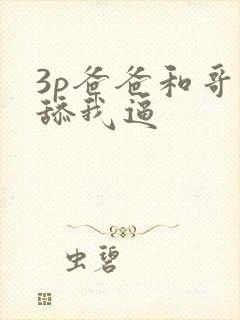 3p爸爸和哥
舔我逼
虫碧